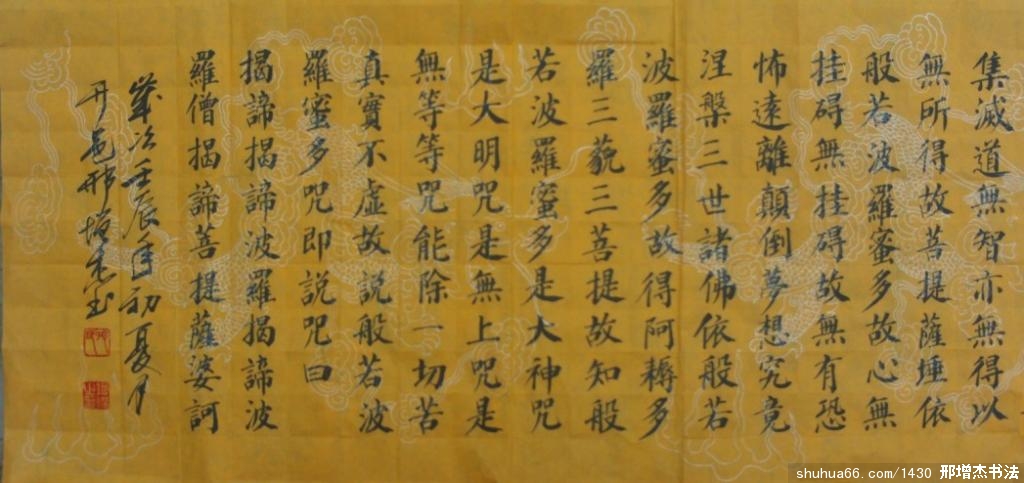 集滅道無智亦無得以
無所得故菩提薩埵依
般若波羅蜜多故心無
挂碍無挂碍故無有恐
怖遠離顛倒夢想究竟
涅槃三世諸佛依般若
波羅蜜多故得阿耨多
羅三藐三菩提故知般
若波羅蜜多是大神咒
是大明咒是無上咒是
無等等咒能除一切苦
真實不虛故說般若波
羅蜜多咒即說咒曰
揭諦揭諦波羅揭諦波
羅僧揭諦菩提薩婆訶
歲次壬辰年初夏月
丹邑邢增杰書
shuhua66.com/1430 邢增杰书法